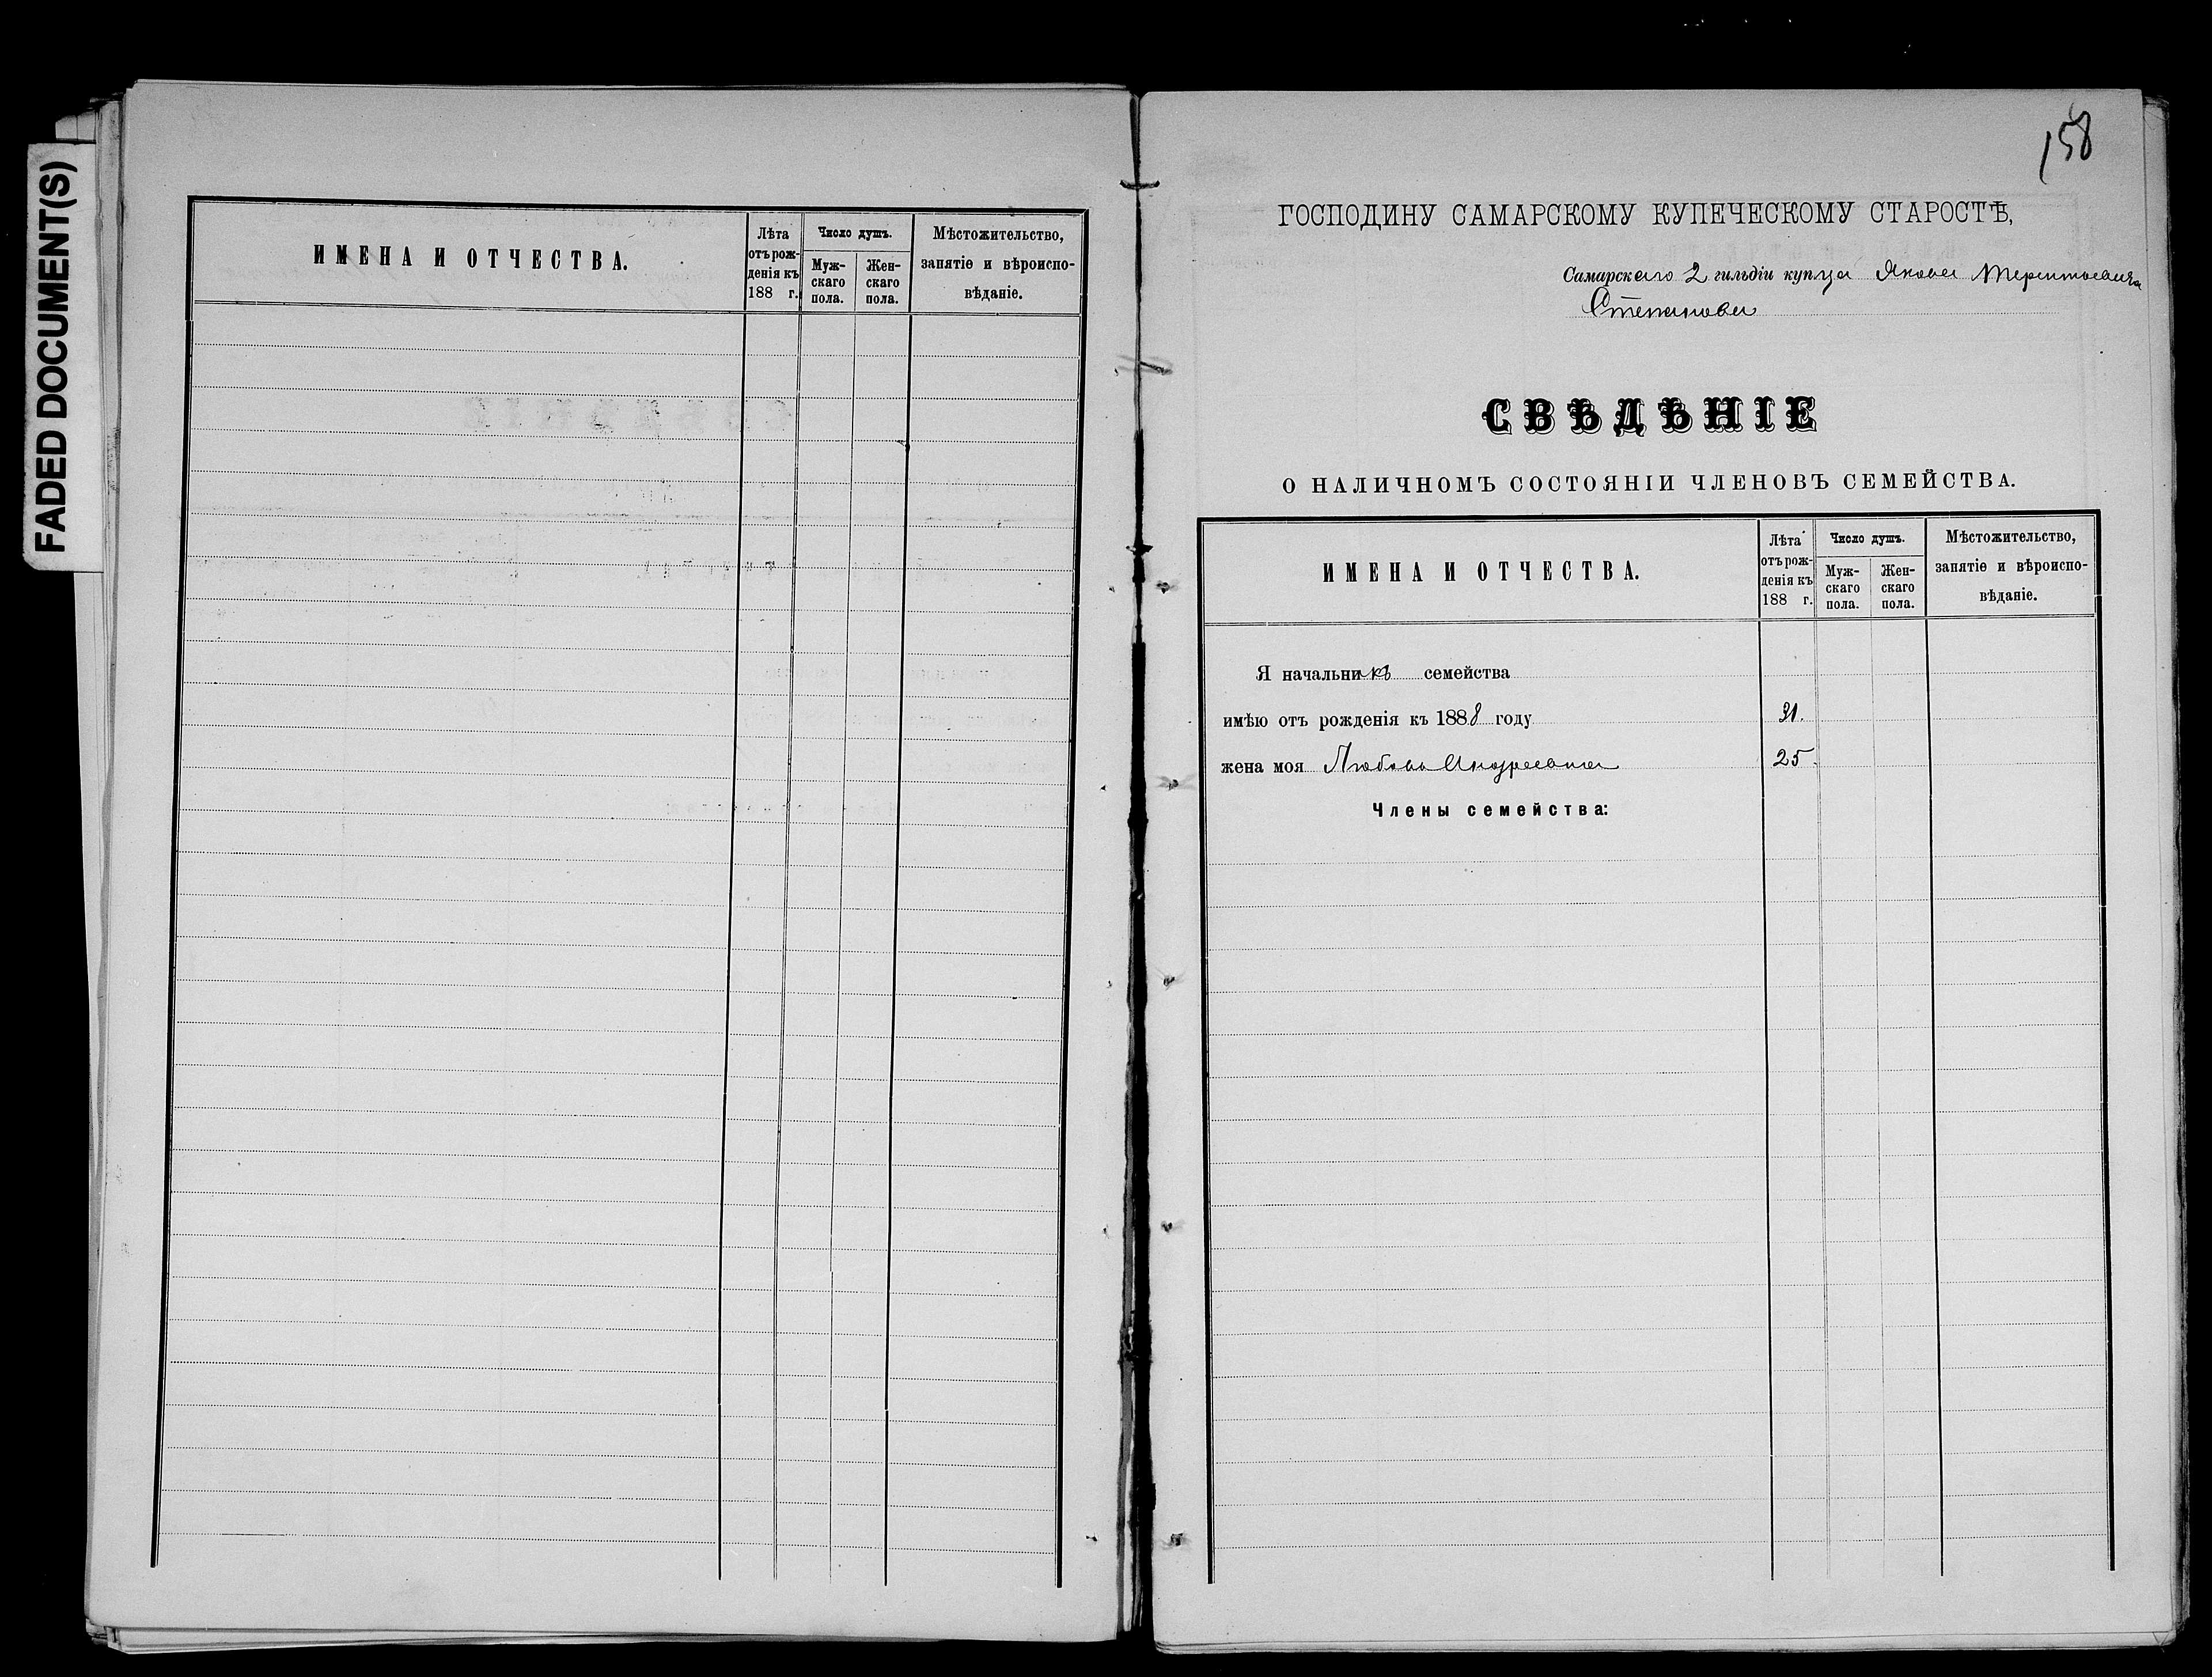 FADED DOCUMENT(S)
ИМЕНА И ОТЧЕСТВА.
Лѣта
отъ рож-
денія къ
188 г.
Число душъ.
Муж-
скаго
пола.
Жен-
скаго
пола.
Мѣстожительство,
занятіе и вѣроиспо-
вѣданіе.
158
ГОСПОДИНУ САМАРСКОМУ КУПЕЧЕСКОМУ СТАРОСТѢ,
Самарскаго 2 гильдіи купца Якова Терентьевича
Степанова
СВѢДѢНІЕ
О НАЛИЧНОМЪ СОСТОЯНІИ ЧЛЕНОВЪ СЕМЕЙСТВА.
ИМЕНА И ОТЧЕСТВА.
Лѣта
отъ рож-
денія къ
188 г.
Число душъ.
Муж-
скаго
пола.
Жен-
скаго
пола.
Мѣстожительство,
занятіе и вѣроиспо-
вѣданіе.
Я начальникъ семейства
имѣю отъ рожденія къ 1888 году 31.
жена моя Любовь Андреевна 25.
Члены семейства: